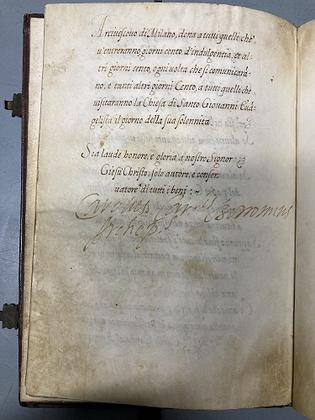 Arciuescouo di Milano, dona a tutti quelli che
v'entreranno giorni cento d'indulgentia, et al=
tri giorni cento, ogni volta che si comunicara=
no, e tutti altri giorni Cento, a tutti quelli che
visitaranno la Chiesa di Santo Giovanni Eua(n)=
gelista il giorno della sua solennita.
Sia laude honore, e gloria a nostro Signor
Giesù Christo, solo autore, e conser=
uatore di tutti i beni:
Car.lis Borromeus
Archiep.